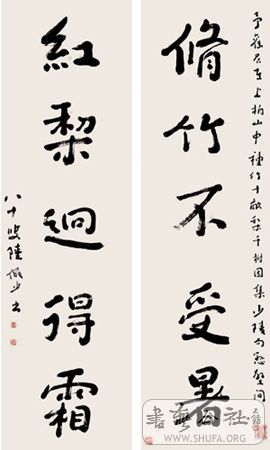 予舊居在上柏山中種竹十畝梨千樹因集少陵句懸壁間
脩竹不受暑
紅梨迥得霜
八十叟陸儼少書
WWW.SHUFA.ORG